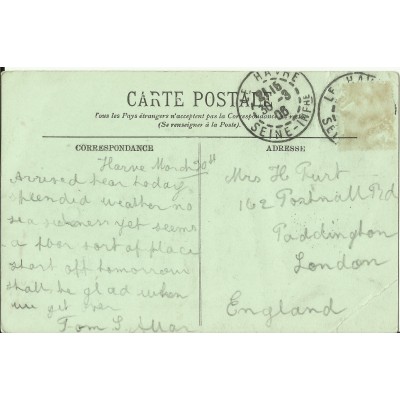 CARTE POSTALE
Tous les Pays étrangers n'acceptent pas la Correspondance
(Se renseigner à la Poste)
LE HAVRE
SEINE-INFRE
CORRESPONDANCE
ADRESSE
Havre March 20th
Arrived hear today
splendid weather no
sea sickness yet seems
a poor sort of place
start off tomorrow
shalls be glad when
we get over
Tom
Mrs H Purt
162 Rd
Paddington
London
England